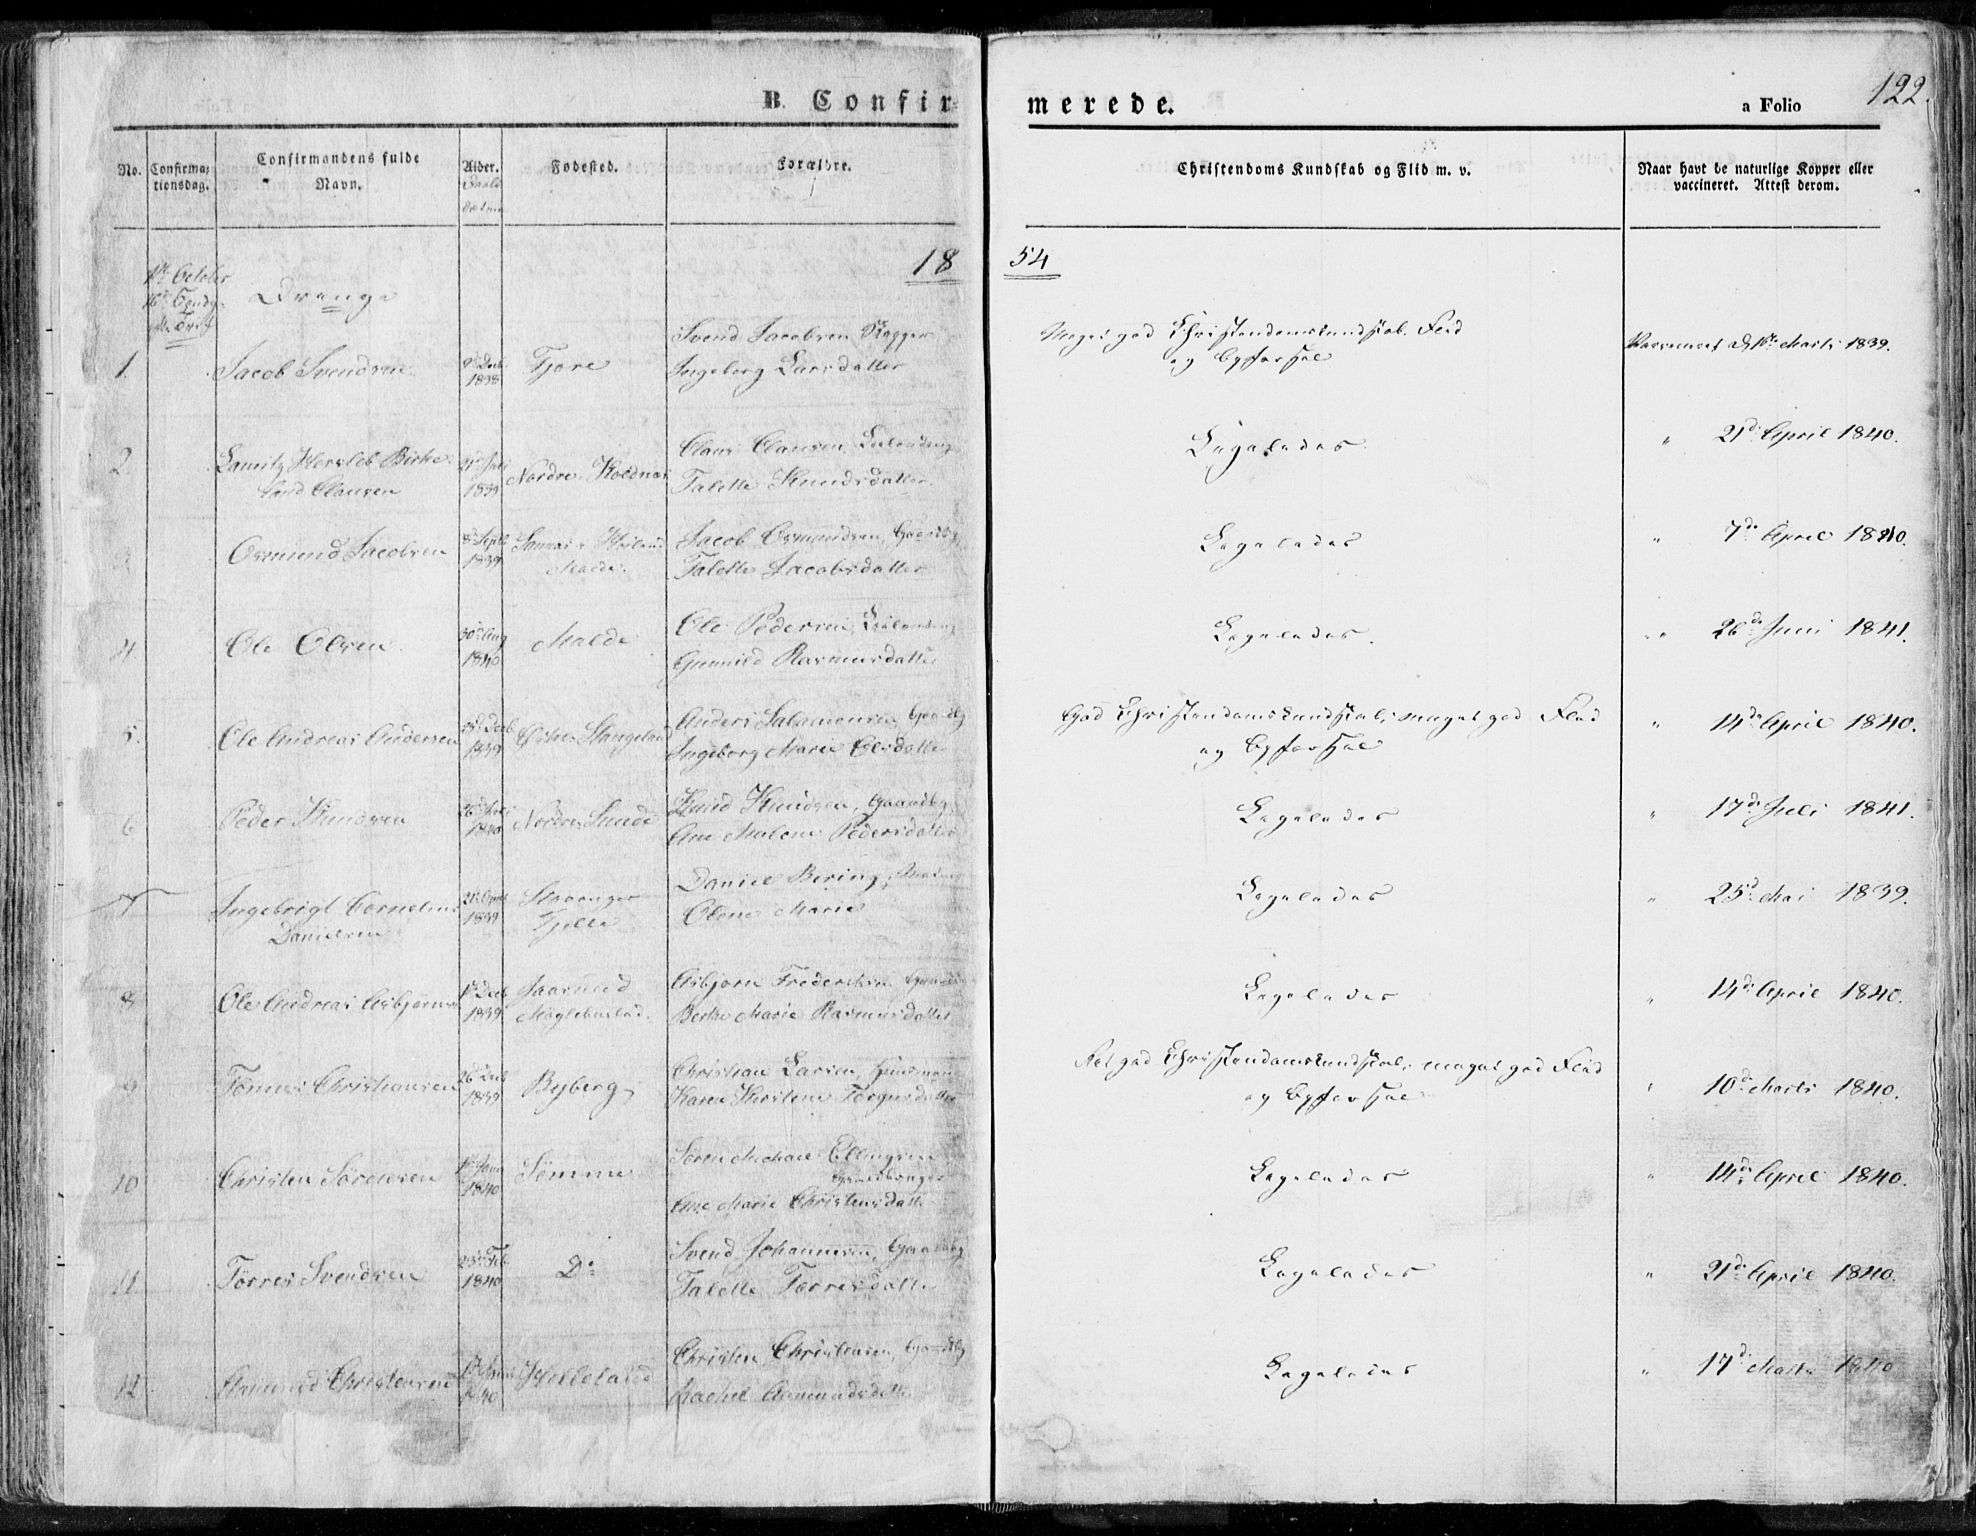 B. Confirmerede.
a Folio 122.
No.
Confirmationsdag.
Confirmandens fulde Navn.
Alder.
Fødested.
Forældre.
Christendoms Kundskab og Flid m. v.
Naar havt de naturlige Kopper eller vaccineret. Attest derom.
1854
1de October
16de Søndg.
efter Trin.
Drenge
1. Jacob Svendsen
1838 Tjore
Svend Jacobsen
Ingeborg Larsdatter
Meget god Christendomskundskab. Flid
og Opførsel
Marts 1839.
2
Clausen
21de Juli
1839 Nordre
Claus Clausen
Talette Knudsdatter
Ligeledes
" 21de April 1840.
3 Osmund Jacobsen
8de Septb
1839
Malde.
Jacob Osmundsen, Gaardbg
Talette Jacobsdatter
Ligeledes
" 7de April 1840.
4 Ole Olsen
30de Aug
1840 Malde
Ole Pedersen
Gunnild Rasmusdatter
Ligeledes.
" 26de Juni 1841.
5. Ole Andreas Andersen
1839 Østre Stangeland
Anders Salamonsen, Gaardbg
Ingeborg Marie Olsdatter
God Christendomskundskab, meget god Flid
og Opførsel
" 14de April 1840.
6 Peder Knudsen
1840 Nordre Sunde
Knud Knudsen, Gaardbg.
Ane Malene Pedersdatter
Ligeledes
" 17de Juli 1841.
7 Ingebrigt Cornelius
Danielsen
1839 Stavanger
Tjelte
Daniel Bering,
Olene Marie
Ligeledes
" 25de Mai 1839.
8 Ole Andreas Asbjørnsen
1839
Asbjørn Fredriksen
Berthe Marie Rasmusdatter
Ligeledes
" 14de April 1840.
9 Tønnes Christiansen
26de Decb
1839 Byberg
Christian Larsen, Huusmand
Karen Kirstine Torgersdatter
god Christendomskundskab, meget god Flid
og Opførsel
" 10de Marts 1840.
10 Christen Sørensen
1840 Sømme
Søren Michael Ellingsen
Gaardbruger
Ane Marie Christensdatter
Ligeledes
" 14de April 1840.
11 Tørres Svendsen
23de Feb
1840 Do
Svend Johannesen, Gaardbg
Talette Tørresdatter
Ligeledes
" 21de April 1840.
12 Asmund Christensen
1840 Helleland
Christen Christensen, Gaardbg
Rachel Asmundsdatter
Ligeledes
" 17de Marts 1840